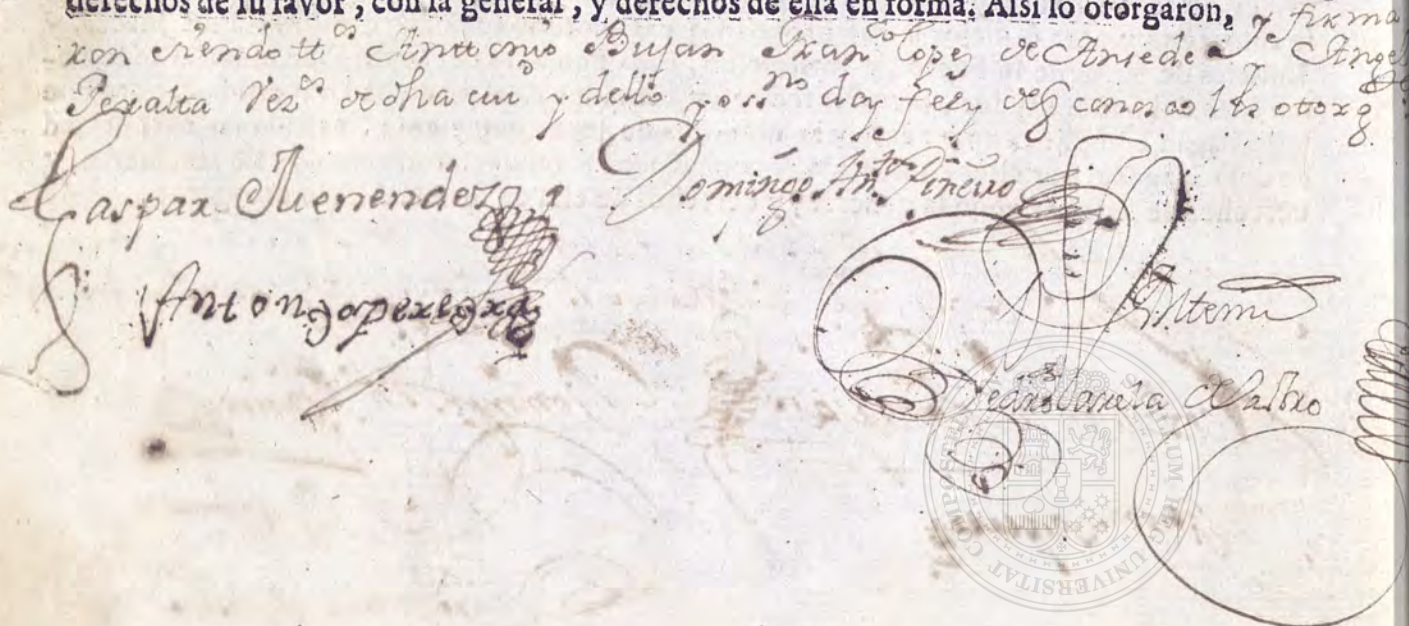 derechos de su favor, con la general, y derechos de ella en forma. Assi lo otorgaron, y firma
ron siendo tt.os Anttonio Bujan Fran.co Lopez de Aniede y Angel
Peralta vez.os de dha ciu.d y dello yo ess.no doy fee y q conozco los otorg
Gaspar Menendez
Domingo Ant.o Pineyro
Antonyo perexra
Antemi
Pedro Varela de Castro
UNIVERSITAT